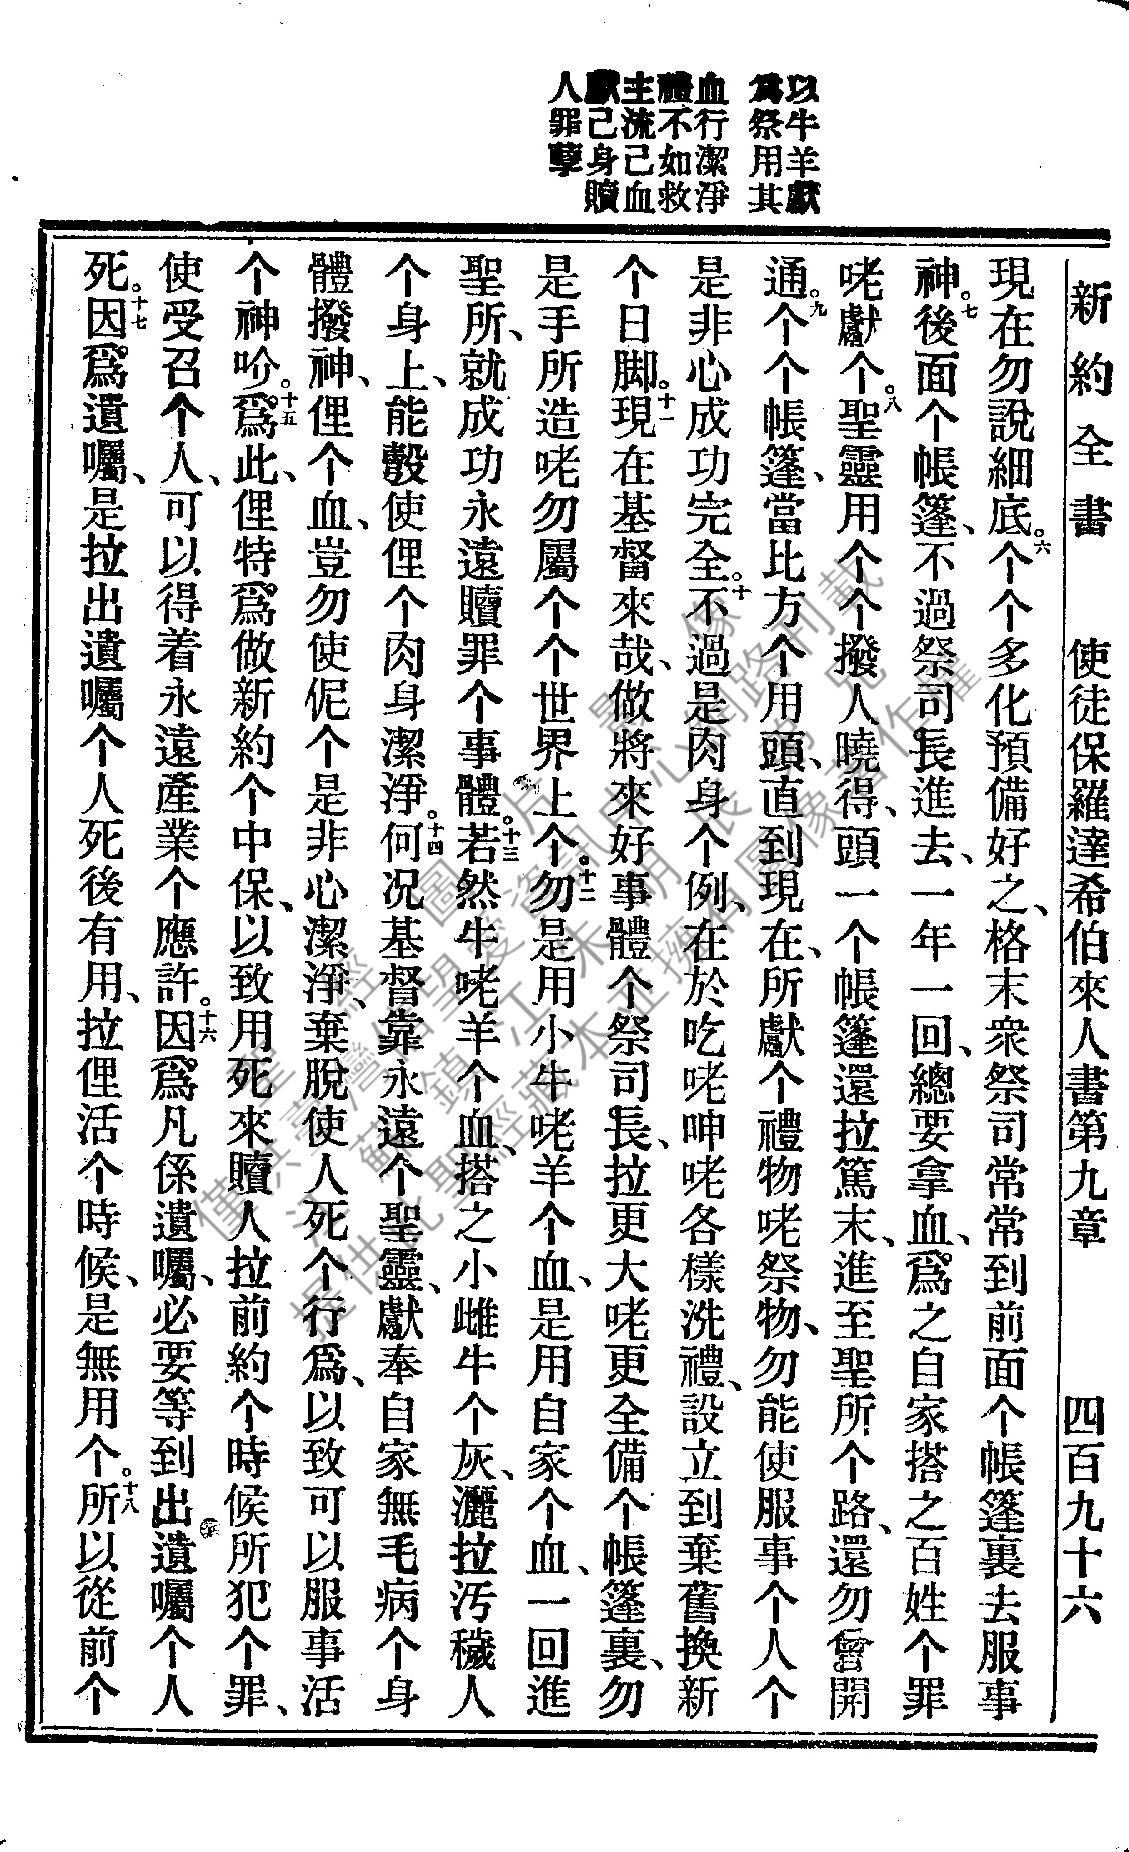 以牛羊獻
爲祭用其
血行潔淨
禮不如救
主流己血
獻己身贖
人罪孽
新約全書 使徒保羅達希伯來人書第九章 四百九十六
現在勿說細底。六个个多化預備好之、格末衆祭司常常到前面个帳篷裏去服事
神。七後面个帳篷、不過祭司長進去、一年一回、總要拿血、爲之自家搭之百姓个罪
咾獻个。八聖靈用个个撥人曉得、頭一个帳篷還拉篤末、進至聖所个路、還勿曾開
通。九个个帳篷、當比方个用頭、直到現在、所獻个禮物咾祭物、勿能使服事个人个
是非心成功完全。十不過是肉身个例、在於吃咾呷咾各樣洗禮、設立到棄舊換新
个日脚。十一現在基督來哉、做將來好事體个祭司長、拉更大咾更全備个帳篷裏、勿
是手所造咾勿屬个个世界上个。十二勿是用小牛咾羊个血、是用自家个血、一回進
聖所、就成功永遠贖罪个事體。十三若然牛咾羊个血、搭之小雌牛个灰、灑拉汚穢人
个身上、能彀使俚个肉身潔淨。十四何况基督靠永遠个聖靈、獻奉自家無毛病个身
體撥神、俚个血、豈勿使伲个是非心潔淨、棄脫使人死个行爲、以致可以服事活
个神吤。十五爲此、俚特爲做新約个中保、以致用死來贖人拉前約个時候所犯个罪、
使受召个人、可以得着永遠產業个應許。十六因爲凡係遺囑、必要等到出遺囑个人
死。十七因爲遺囑、是拉出遺囑个人死後有用、拉俚活个時候、是無用个。十八所以從前个